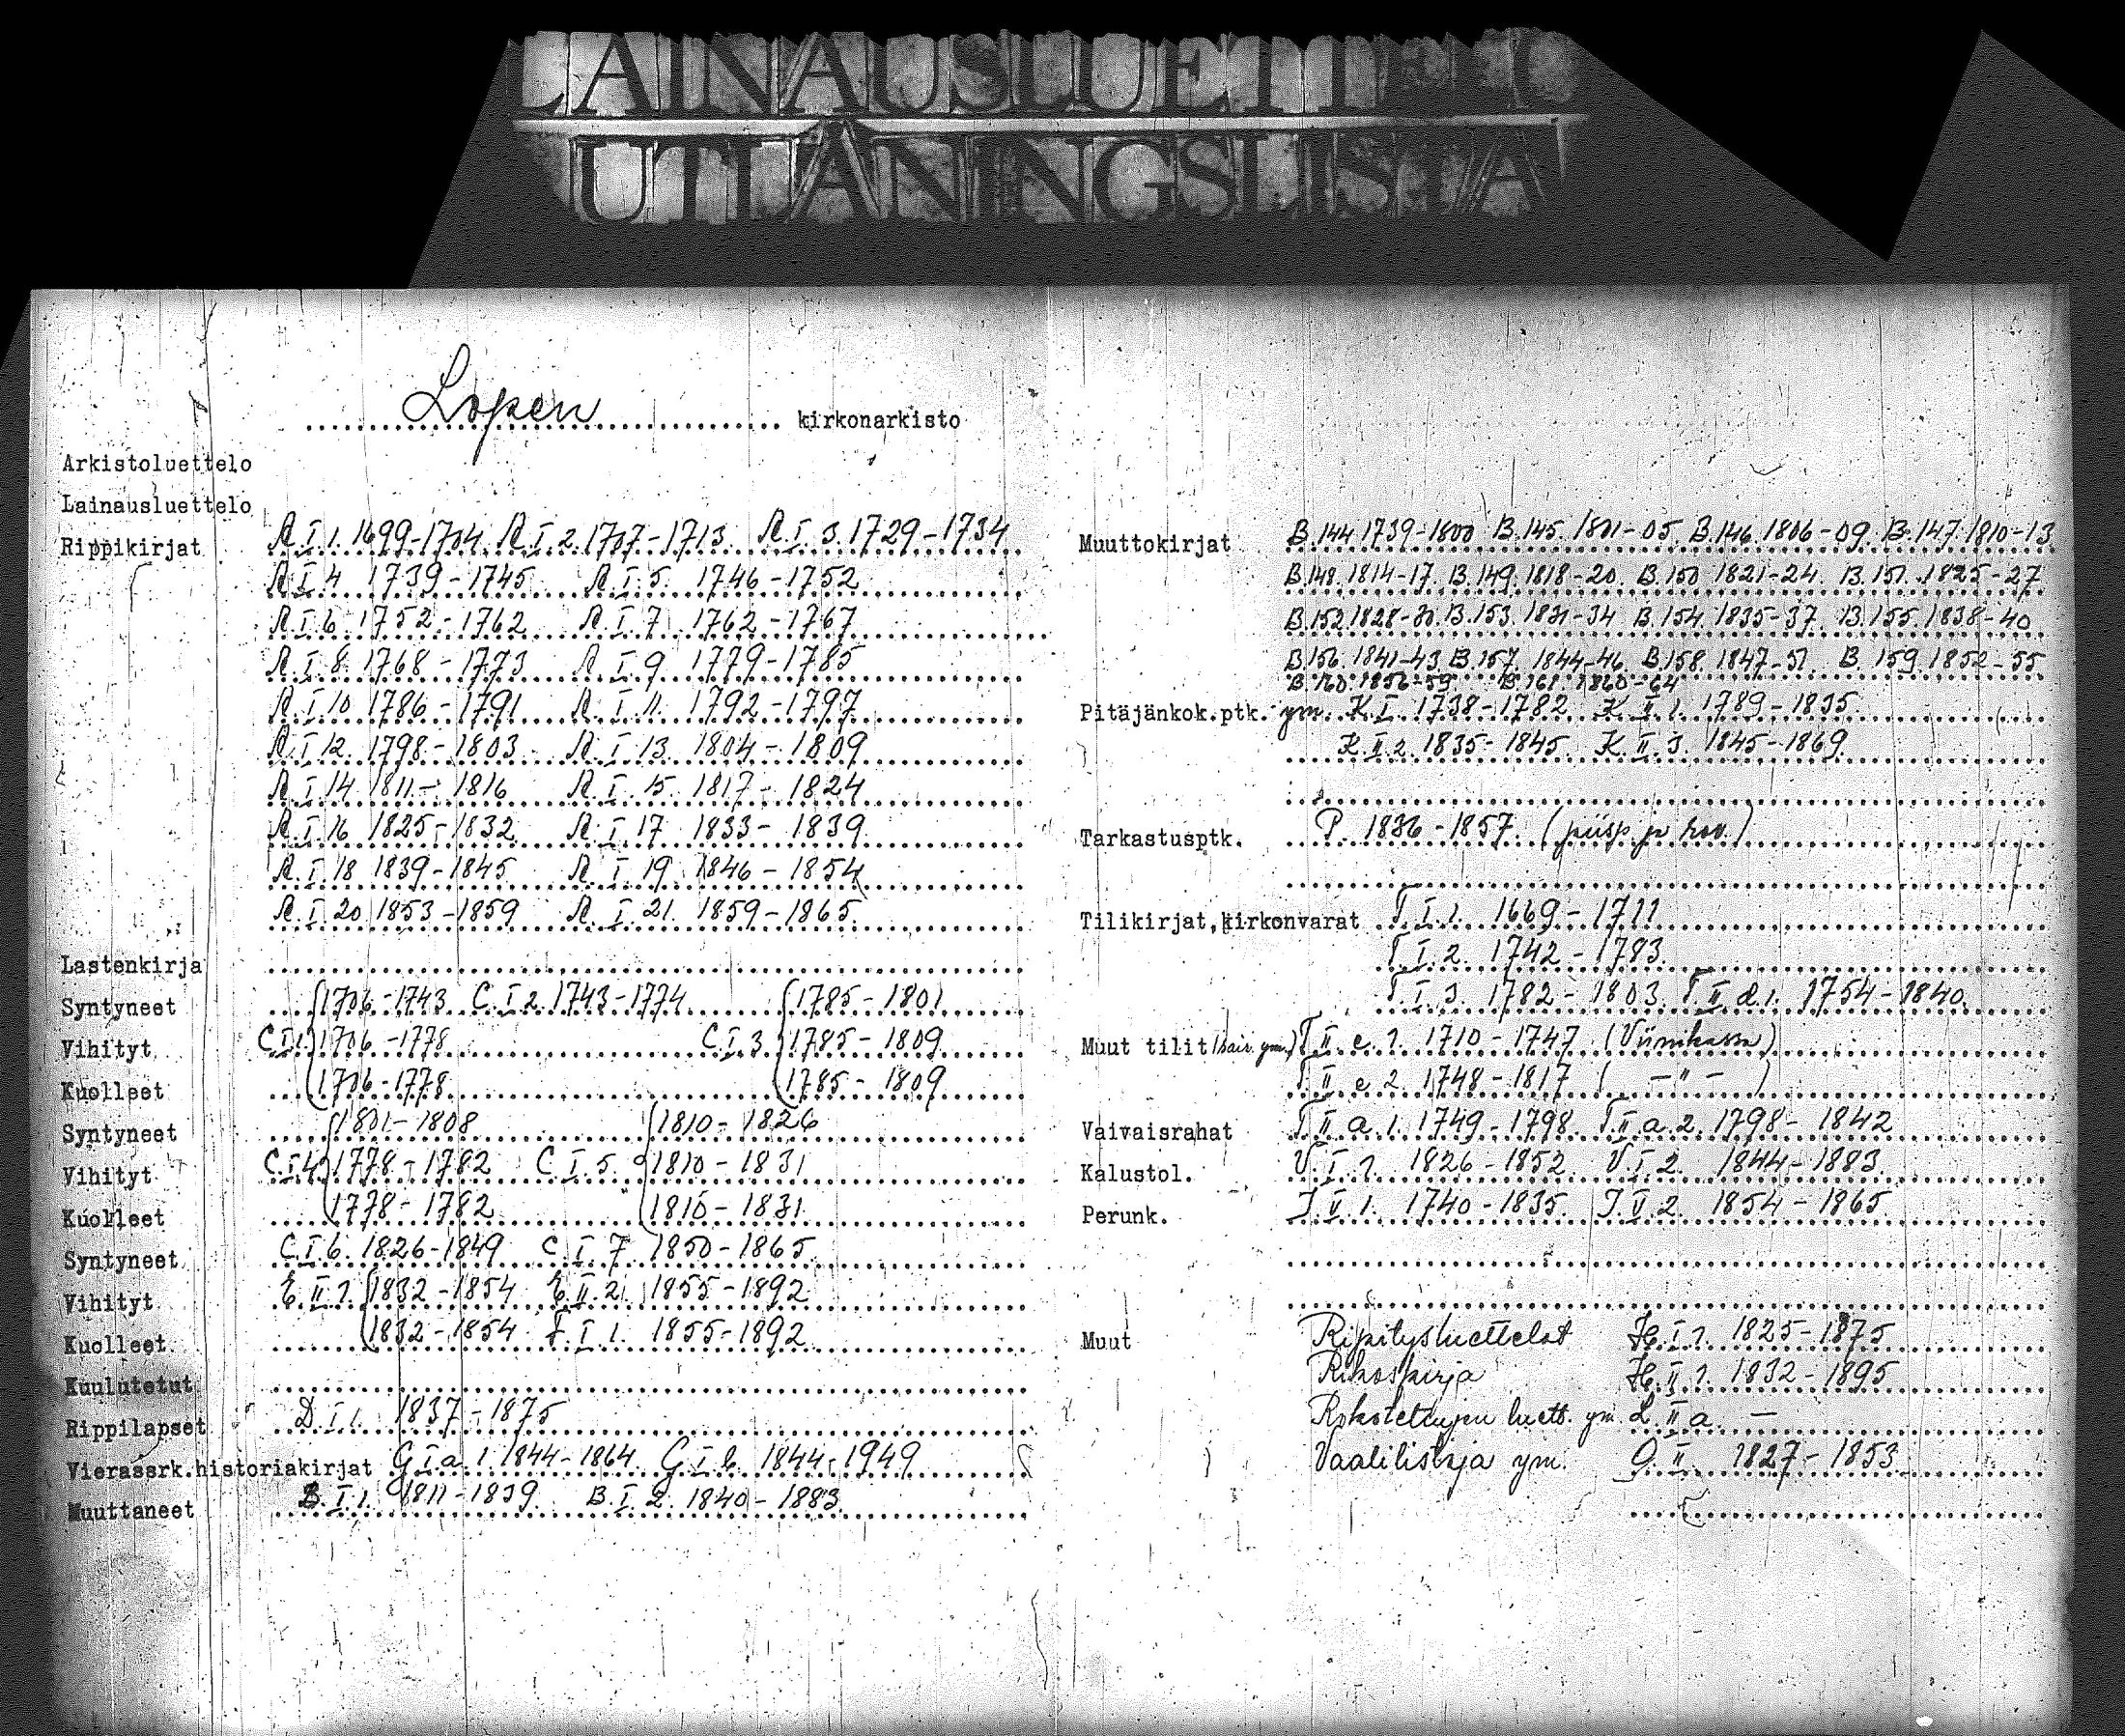 LAINAUSLUETTELO
UTLÅNINGSLISTA
Lopen kirkonarkisto
Arkistoluettelo
Lainausluettelo
Rippikirjat A.I.1. 1699-1704 A.I.2. 1707-1713. A.I.3. 1729-1734
A.I.4 1739-1745 A.I.5. 1746-1752
A.I.6 1752-1762 A.I.7 1762-1767
A.I.8. 1768-1773 A.I.9 1779-1785
A.I.10 1786-1791 A.I.11. 1792-1797
A.I.12. 1798-1803 A.I.13. 1804-1809
A.I.14 1811-1816 A.I.15. 1817-1824
A.I.16 1825-1832 A.I.17 1833-1839
A.I.18 1839-1845 A.I.19. 1846-1854
A.I.20. 1853-1859 A.I.21. 1859-1865.
Lastenkirja
Syntyneet 1706-1743 C.I.2. 1743-1774 1785-1801
Vihityt C.I.1. 1706-1778 C.I.3 1785-1809
Kuolleet 1706-1778 1785-1809
Syntyneet 1801-1808 1810-1826
Vihityt C.I.4. 1778-1782 C.I.5. 1810-1831
Kuolleet 1778-1782 1810-1831
Syntyneet C.I.6. 1826-1849 C.I.7. 1850-1865
Vihityt E.II.1. 1832-1854 E.II.2. 1855-1892
Kuolleet 1832-1854 F.I.1. 1855-1892
Kuulutetut
Rippilapset D.I.1. 1837-1875
Vierassrk.historiakirjat G.I.a.1. 1844-1864. G.I.b. 1844-1949
Muuttaneet B.I.1. 1811-1839. B.I.2. 1840-1883.
Muuttokirjat B.144 1739-1800 B.145. 1801-05. B.146. 1806-09. B.147. 1810-13
B.148. 1814-17. B.149. 1818-20. B.150 1821-24. B.151. 1825-27
B.152 1828-30. B.153. 1831-34 B.154. 1835-37. B.155. 1838-40
B.156. 1841-43. B.157. 1844-46. B.158. 1847-51. B.159. 1852-55
B.160. 1856-59 B.161 1860-64
Pitäjänkok.ptk. ym. K.I. 1738-1782 K.II.1. 1789-1835
K.II.2. 1835-1845. K.II.3. 1845-1869.
Tarkastusptk. P. 1836-1857. (piisp. ja rov.)
Tilikirjat,kirkonvarat T.I.1. 1669-1711
T.I.2. 1742-1783.
T.I.3. 1782-1803. T.II.d.1. 1754-1840.
Muut tilit (sair. ym.) T.II.e.1. 1710-1747 (Viinikassa)
T.II.e.2. 1748-1817 ( -"- )
Vaivaisrahat T.II.a.1. 1749-1798. T.II.a.2. 1798-1842
Kalustol. V.I.1. 1826-1852. V.I.2. 1844-1883.
Perunk. J.V.1. 1740-1835. J.V.2. 1854-1865
Muut Ripitysluettelot H.I.1. 1825-1875
Rikoskirja H.II.1. 1832-1895
Rokotettujen luett. ym. L.II.a. -
Vaalilistoja ym. O.II. 1827-1853